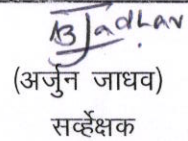 ABJadhav
(अर्जुन जाधव)
सर्व्हेक्षक